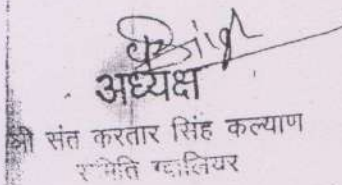 अध्यक्ष
श्री संत करतार सिंह कल्याण
समिति ग्वालियर